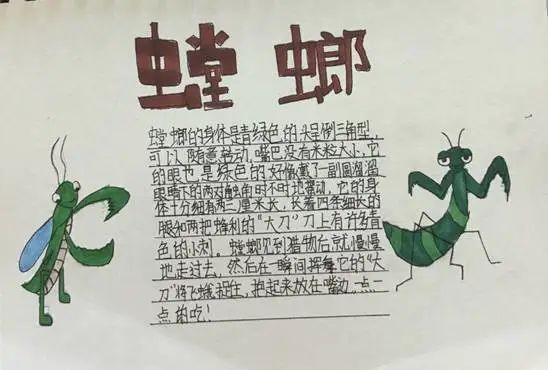 螳螂
螳螂的身体是青绿色的,头呈倒三角型,
可以随意转动,嘴巴没有米粒大小,它
的眼也是绿色的好像戴了副圆溜溜
眼睛下的两对触角时不时地摆动,它的身
体十分细有两三厘米长,长着四条细长的
腿和两把锋利的“大刀”刀上有许多青
色的小刺。螳螂见到猎物后就慢慢
地走过去,然后在一瞬间挥舞它的“大
刀”将飞蛾捉住,抱起来放在嘴边一点一
点的吃!